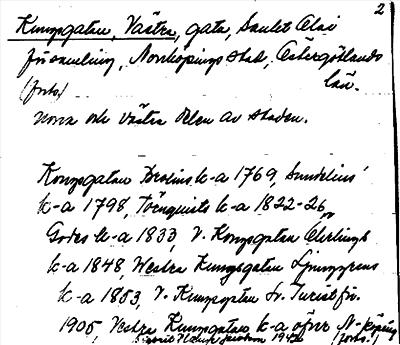 2
Kungsgatan, Västra, gata, Sankt Olai
församling, Norrköpings stad, Östergötlands
(forts.) län.
norra och västra delen av staden.
Konzsgatan Brolins k-a 1769, Sundelius'
k-a 1798, Törnquists k-a 1822-26,
Godes k-a 1833, V. Kongsgatan Ehrlings
k-a 1848, Westra Kungsgatan Ljunggrens
k-a 1853, V. Kungsgatan Sv. Turistför.
1905, Vestra Kungsgatan k-a öfver N-köping
(forts.)